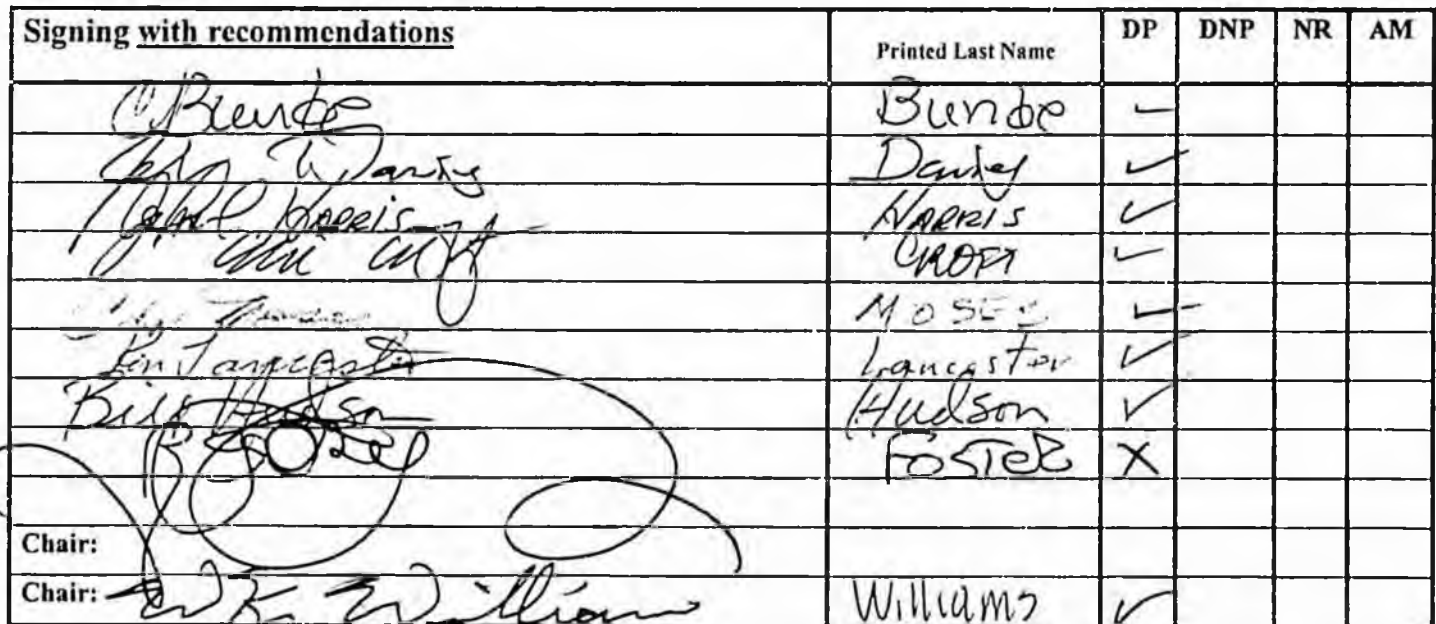 Signing with recommendations Printed Last Name DP DNP NR AM
C Bunde Bunde ✓
W. Davies Davies ✓
Harris Harris ✓
Croft CROFT ✓
MOSES ✓
Ken Lancaster Lancaster ✓
Bill Hudson Hudson ✓
Foster FOSTER X
Chair:
Chair: W. K. Williams Williams ✓